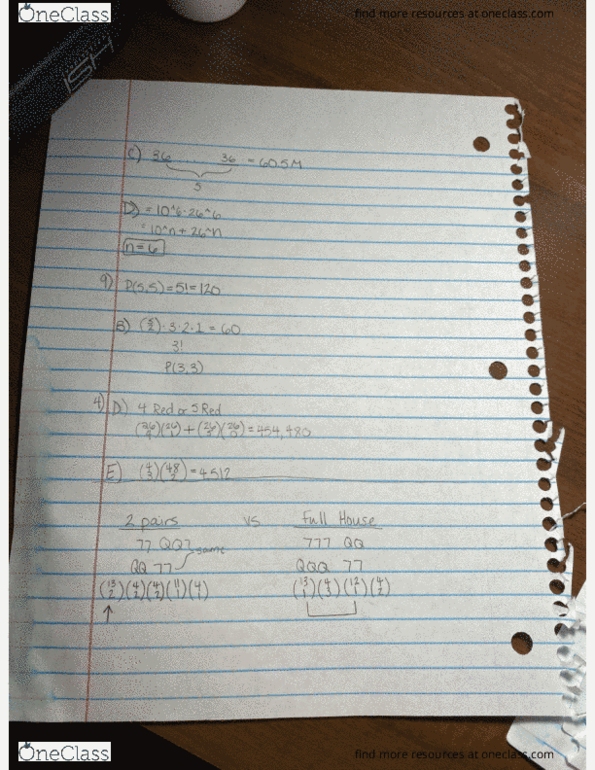 OneClass
find more resources at oneclass.com
C) 36 ... 36 = 60.5M
5
D) = 10^6·26^6
= 10^n + 26^n
n=6
9) P(5,5)=5!=120
B) (5 2)·3·2·1 = 60
3!
P(3,3)
4) D) 4 Red or 5 Red
(26 4)(26 1) + (26 5)(26 0) = 454,480
E) (4 3)(48 2) = 4512
2 pairs vs Full House
77 QQ? 777 QQ
same
QQ 77 QQQ 77
(13 2)(4 2)(4 2)(11 1)(4 1) (13 1)(4 3)(12 1)(4 2)
OneClass
find more resources at oneclass.com